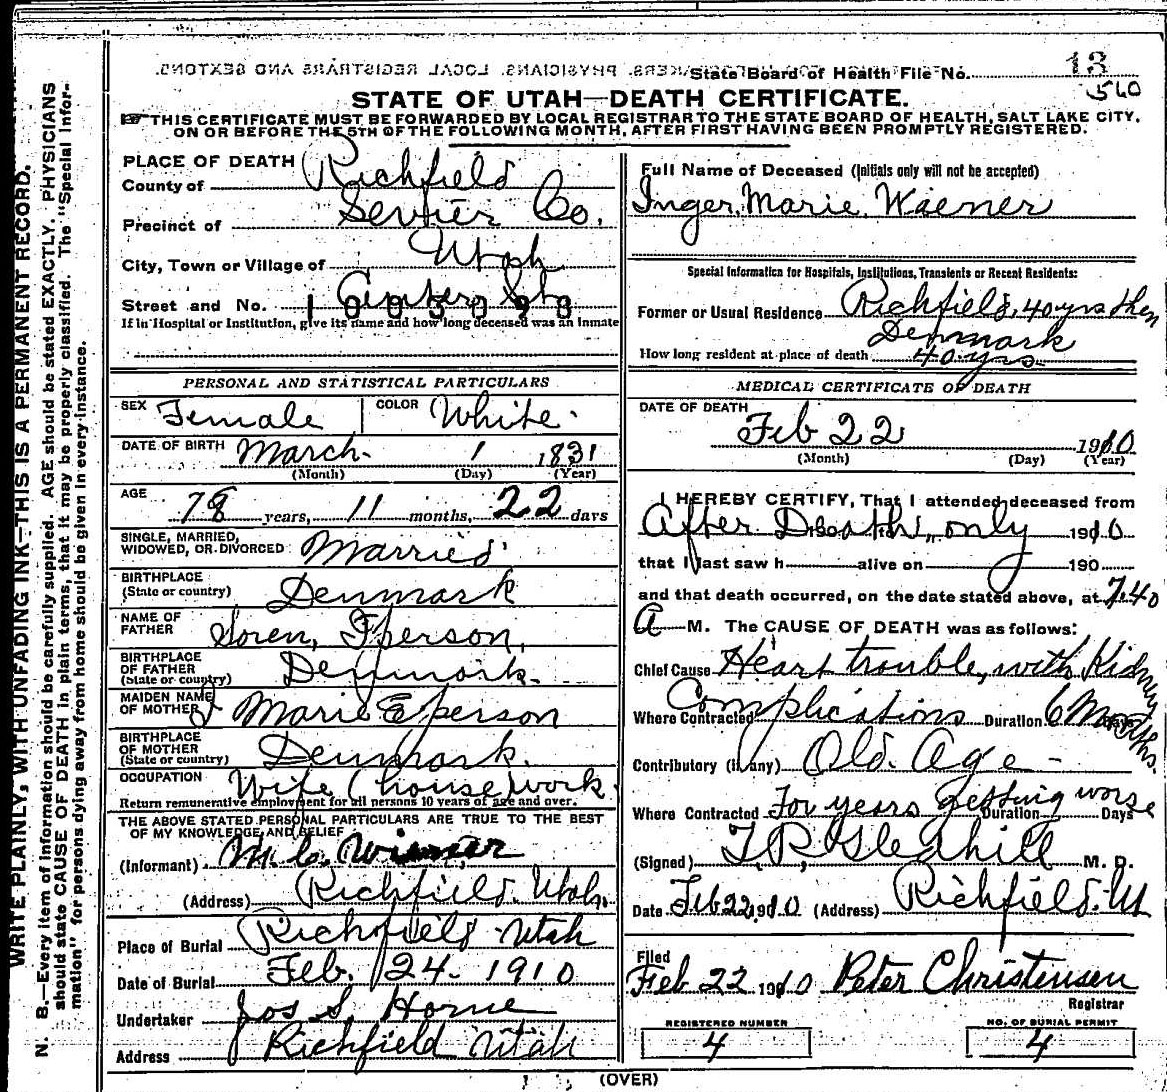 State Board of Health File No. 13
560
STATE OF UTAH—DEATH CERTIFICATE.
THIS CERTIFICATE MUST BE FORWARDED BY LOCAL REGISTRAR TO THE STATE BOARD OF HEALTH, SALT LAKE CITY,
ON OR BEFORE THE 5TH OF THE FOLLOWING MONTH, AFTER FIRST HAVING BEEN PROMPTLY REGISTERED.
WRITE PLAINLY, WITH UNFADING INK—THIS IS A PERMANENT RECORD.
N. B.—Every item of information should be carefully supplied. AGE should be stated EXACTLY. PHYSICIANS
should state CAUSE OF DEATH in plain terms, that it may be properly classified. The "Special Infor-
mation" for persons dying away from home should be given in every instance.
PLACE OF DEATH
County of Richfield
Precinct of Sevier Co.
City, Town or Village of Utah
Street and No. Center St
If in Hospital or Institution, give its name and how long deceased was an inmate
PERSONAL AND STATISTICAL PARTICULARS
SEX Female COLOR White
DATE OF BIRTH March 1 1831
(Month) (Day) (Year)
AGE 78 years, 11 months, 22 days
SINGLE, MARRIED,
WIDOWED, OR DIVORCED Married
BIRTHPLACE
(State or country) Denmark
NAME OF
FATHER Soren
BIRTHPLACE
OF FATHER
(State or country) Denmark
MAIDEN NAME
OF MOTHER Marie Eperson
BIRTHPLACE
OF MOTHER
(State or country) Denmark
OCCUPATION Wife (housework
Return remunerative employment for all persons 10 years of age and over.
THE ABOVE STATED PERSONAL PARTICULARS ARE TRUE TO THE BEST
OF MY KNOWLEDGE AND BELIEF
(Informant) M. C.
(Address) Richfield. Utah
Place of Burial Richfield Utah
Date of Burial Feb. 24 - 1910
Undertaker Jos S. Horne
Address Richfield Utah
Full Name of Deceased (Initials only will not be accepted)
Inger Marie Waerner
Special Information for Hospitals, Institutions, Transients or Recent Residents:
Former or Usual Residence Richfield, 40 yrs then
Denmark
How long resident at place of death 40 yrs
MEDICAL CERTIFICATE OF DEATH
DATE OF DEATH
Feb 22 1910
(Month) (Day) (Year)
I HEREBY CERTIFY, That I attended deceased from
After Death, only 1910
that I last saw h alive on 190
and that death occurred, on the date stated above, at 7.40
A M. The CAUSE OF DEATH was as follows:
Chief Cause Heart trouble, with Kidney
Where Contracted Complications Duration 6 Months. Days
Contributory (if any) Old Age -
Where Contracted For years getting worse Duration Days
(Signed) T. R. Gledhill M. D.
Date Feb 22, 1910 (Address) Richfield. Ut
Filed
Feb 22 1910 Peter Christensen
Registrar
REGISTERED NUMBER
4
NO. OF BURIAL PERMIT
4
(OVER)